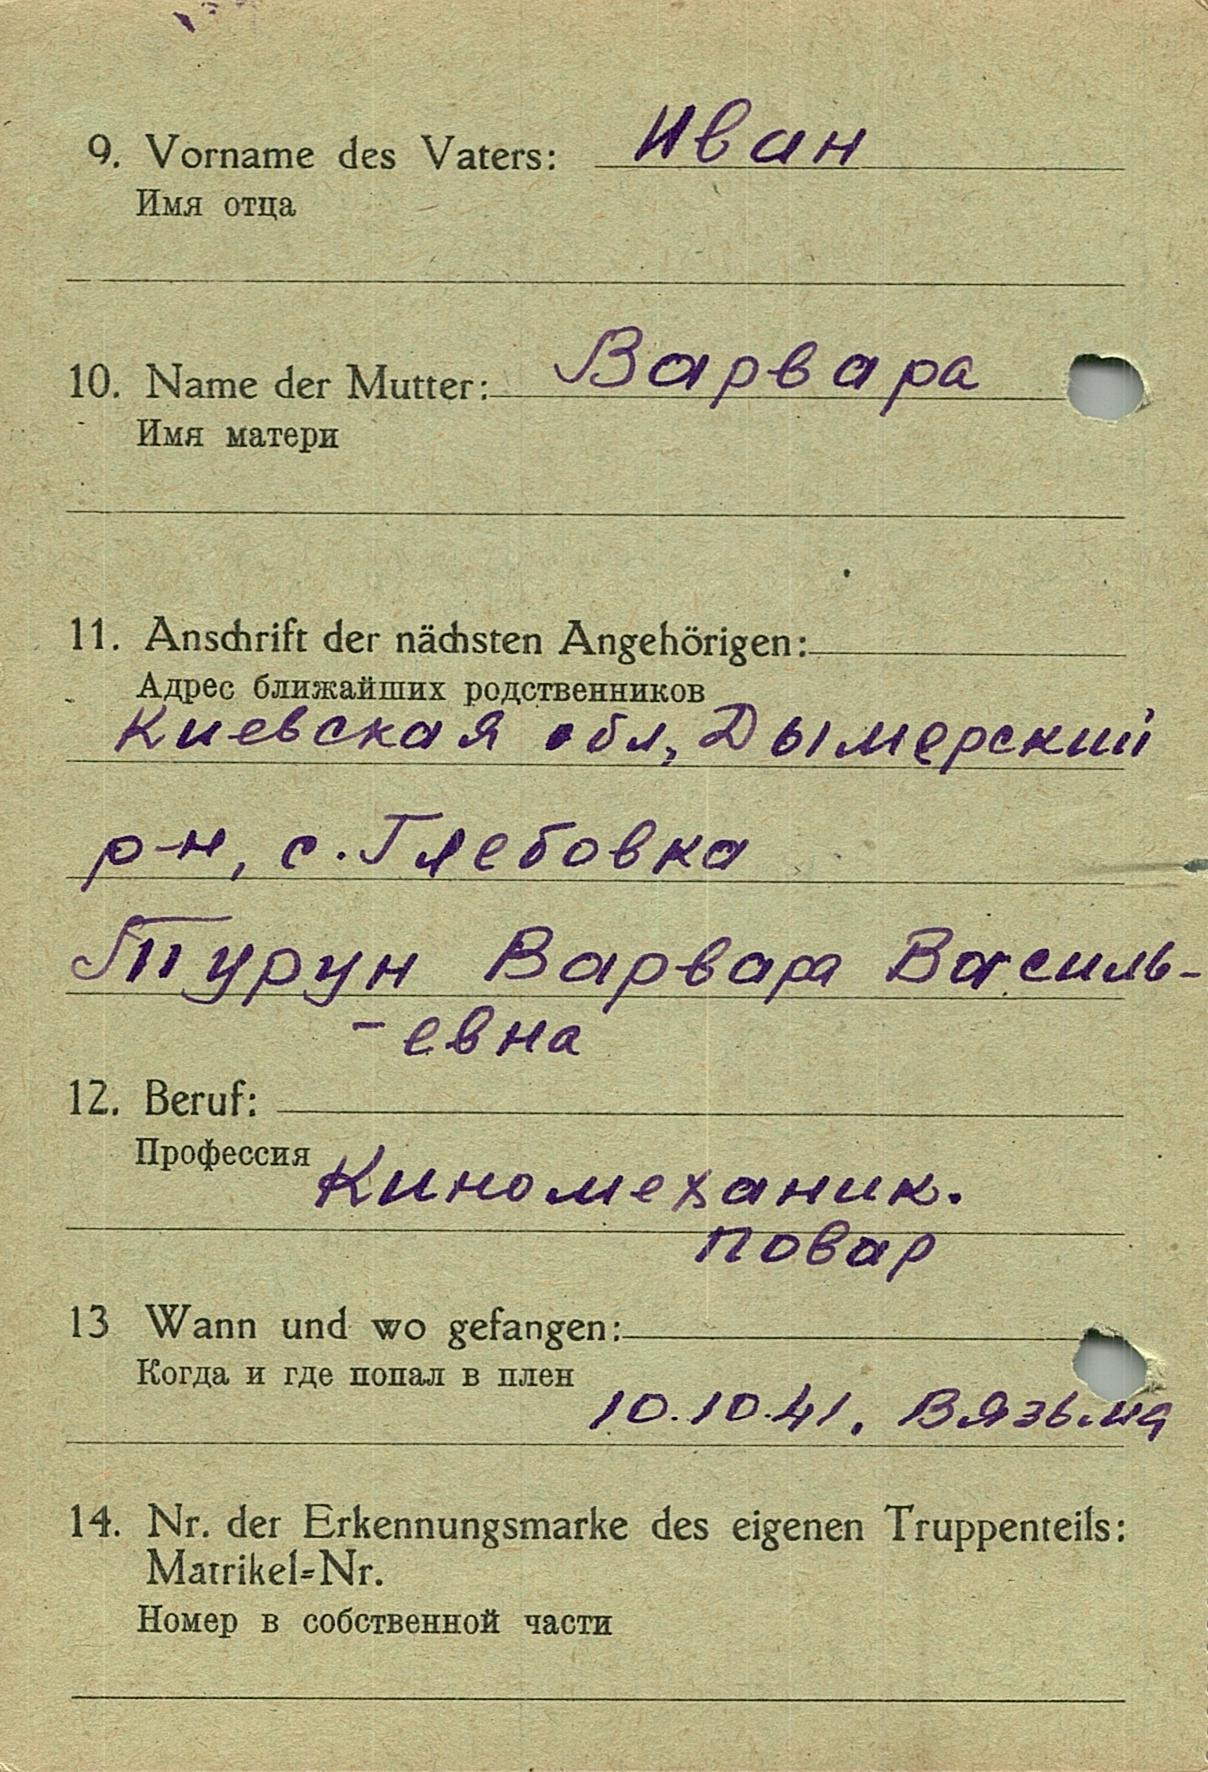 9. Vorname des Vaters: Иван
Имя отца
10. Name der Mutter: Варвара
Имя матери
11. Anschrift der nächsten Angehörigen:
Адрес ближайших родственников
Киевская обл, Дымерский
р-н, с. Глебовка
Турун Варвара Василь-
-евна
12. Beruf:
Профессия Киномеханик.
повар
13 Wann und wo gefangen:
Когда и где попал в плен
10.10.41. Вязьма
14. Nr. der Erkennungsmarke des eigenen Truppenteils:
Matrikel=Nr.
Номер в собственной части